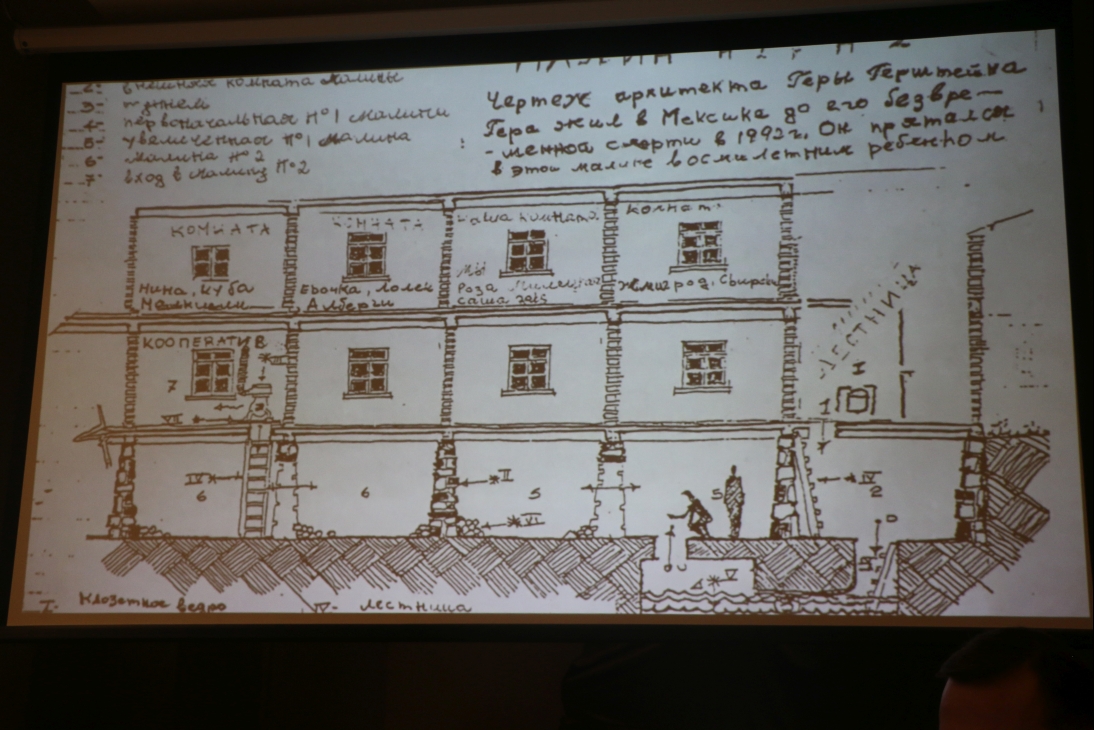 2- внешняя комната Малины
3- тоннель
4- первоначальная Nº1 Малины
5- увеличенная Nº1 Малина
6- Малина Nº2
7- вход в Малину Nº2
Чертеж архитекта Геры Герштейна
Гера жил в Мексика до его безвре-
-менной смерти в 1992г. Он прятался
в этой малине восмилетним ребенком
КОМНАТА
Нина, Куба
КОМНАТА
Евочка, Лолек
наша комната
Мы
Роза
Саша
комнат
Жмигрод,
КООПЕРАТИВ
7
VII
ЛЕСТНИЦА
I
IV
6
6
II
VI
5
5
IV
2
V
I- Клозетное ведро
IV- Лестница